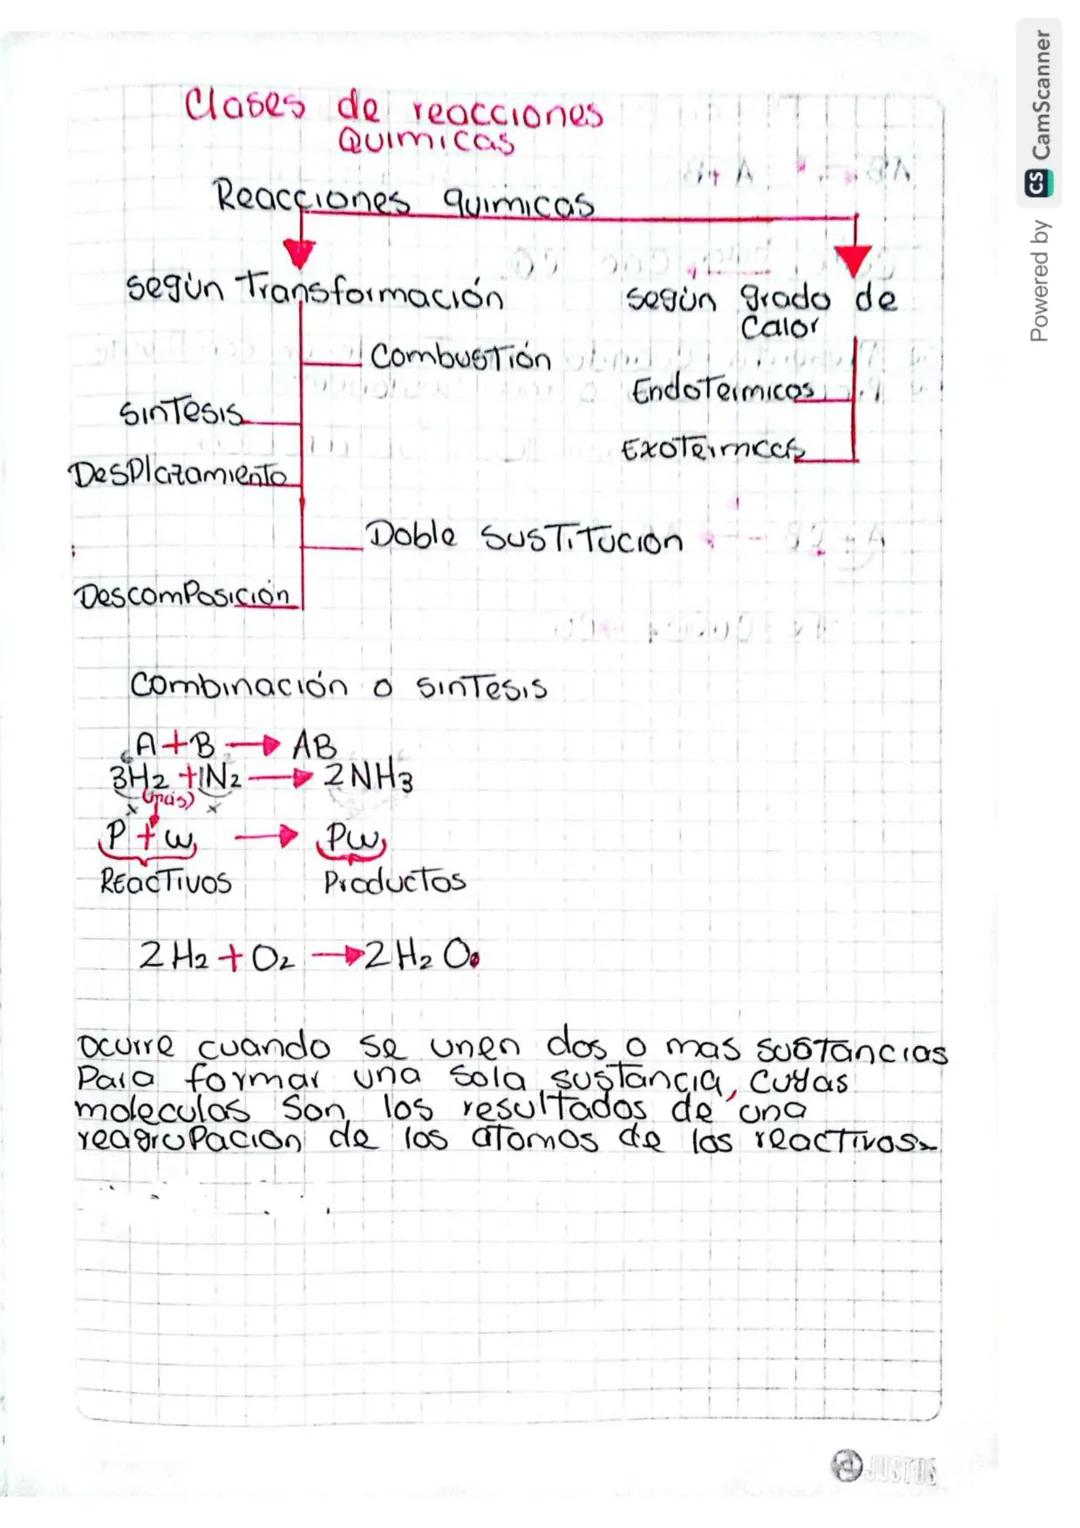 Clases de reacciones
Quimicas
Reacciones quimicas
según Transformación
según grado de
Calor
Combustión
Endotermicas
sintesis
Exotermicas
Desplazamiento
Doble sustitucion
Descomposición
Combinación o sintesis
A+B → AB
3H2 +1N2 → 2NH3
(mas)
P + w → Pw
Reactivos Productos
2H2 + O2 → 2H2O.
ocurre cuando se unen dos o mas sustancias
Para formar una sola sustancia, cuyas
moleculas son los resultados de una
reagrupacion de los atomos de los reactivos
JUSTUS
Powered by CS CamScanner